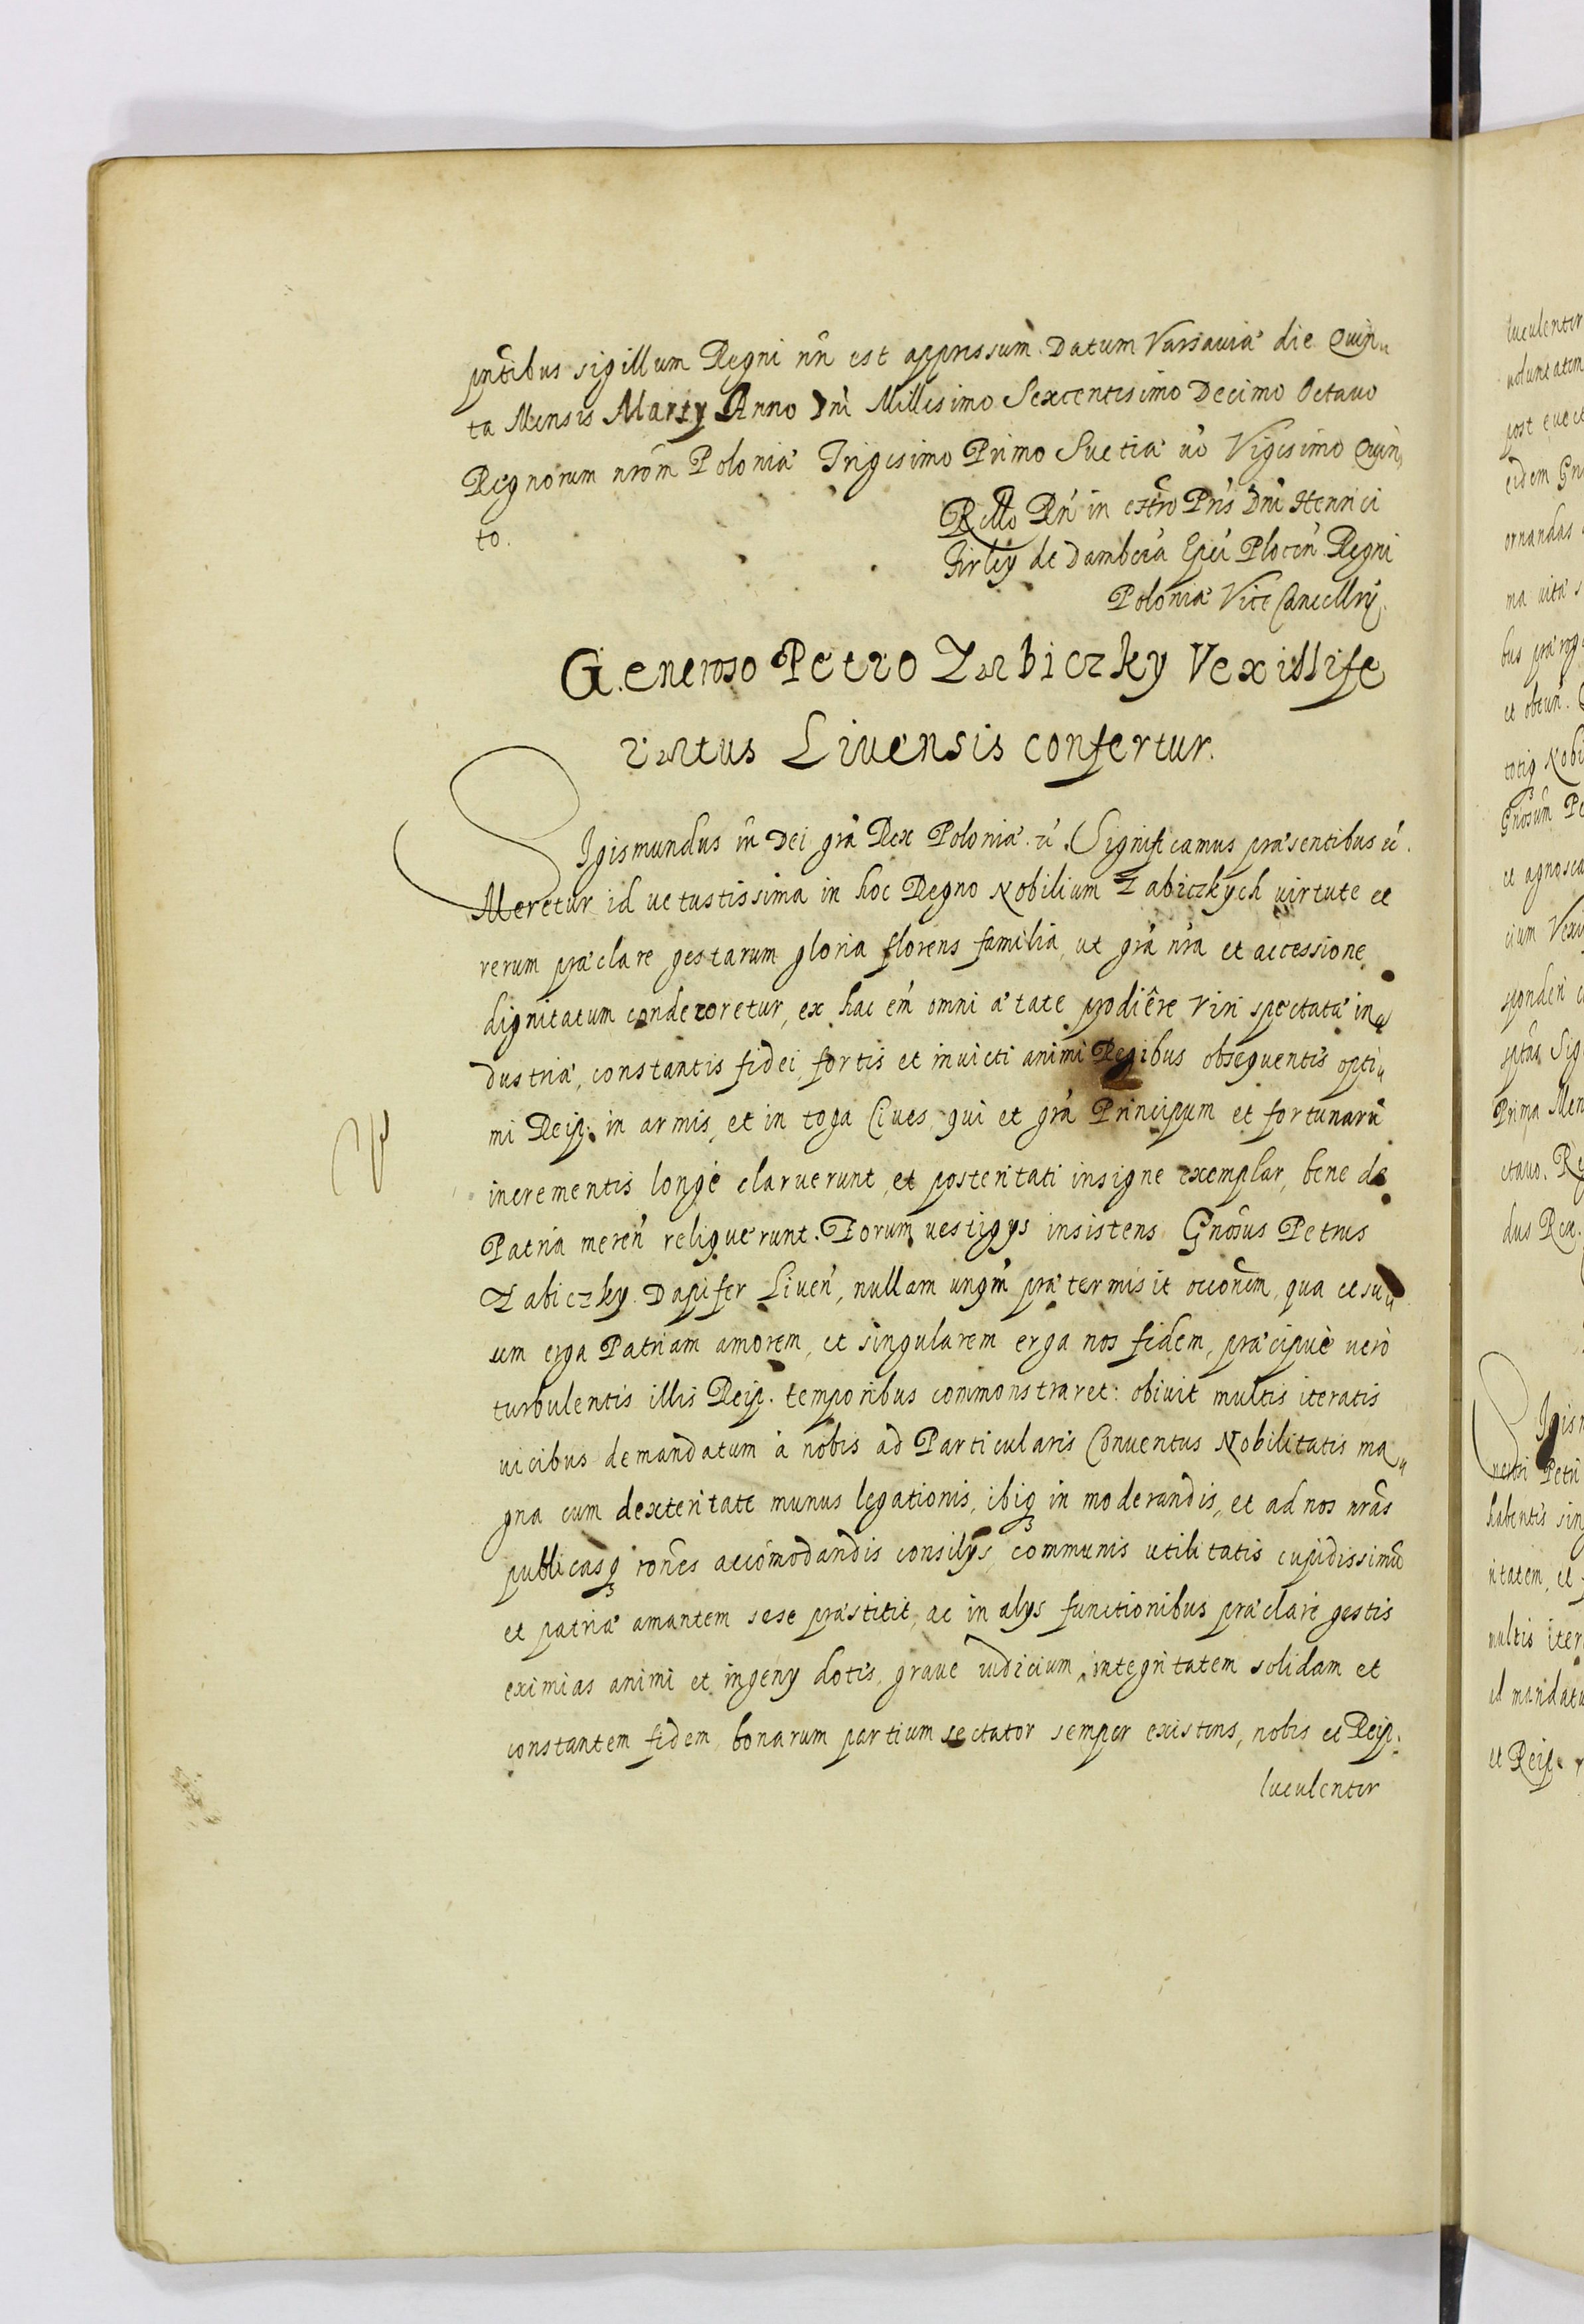 pntibus sigillum Regni nrn est appressum. Datum Varsaviæ die Quin„
ta Mensis Marty Anno Dni Millesimo Sexcentesimo Decimo Octavo
Regnorum nrom Poloniæ Trigesimo Primo Suetiæ uo Vigesimo Quin„
to.
Rello Rn in Chro Pris Dni Henrici
Firley de Dambrca Epi Plocen Regni
Poloniæ Vice Cancellrij.
Generoso Petro Zabiczky Vexillife
ratus Livensis confertur.
SIgismundus III Dei gra Rex Poloniæ. &c. Significamus præsentibus &c.
Meretur id vetustissima in hoc Regno Nobilium Zabiczkych virtute et
rerum præclare gestarum gloria florens familia, ut gra nra et accessione
dignitatum condecoretur, ex hac em omni ætate prodiêre viri spectatæ in„
dustriæ, constantis fidei, fortis et invicti animi Regibus obsequentis opti„
mi Reip. in armis, et in toga Cives, qui et gra Principum et fortunaru
incrementis longè claruerunt, et posteritati insigne exemplar, bene de
Patria meren reliquerunt. Eorum vestigys insistens Gnosus Petrus
Zabiczky Dapifer Liven, nullam unqm prætermisit occonem, qua et su„
um erga Patriam amorem, et singularem erga nos fidem, præcipuè verò
turbulentis illis Reip. temporibus commonstraret: obivit multis iteratis
vicibus demandatum à nobis ad Particularis Conventus Nobilitatis ma„
gna cum dexteritate munus legationis, ibiq3 in moderandis, et ad nos nras
publicasq3 rones accomodandis consilys, communis utilitatis cupidissimu
et patriæ amantem sese præstitit, ac in alys functionibus præclare gestis
eximias animi et ingeny dotis, grave iudicium, integritatem solidam et
constantem fidem, bonarum partium sectator semper existens, nobis et Reip.
luculenter